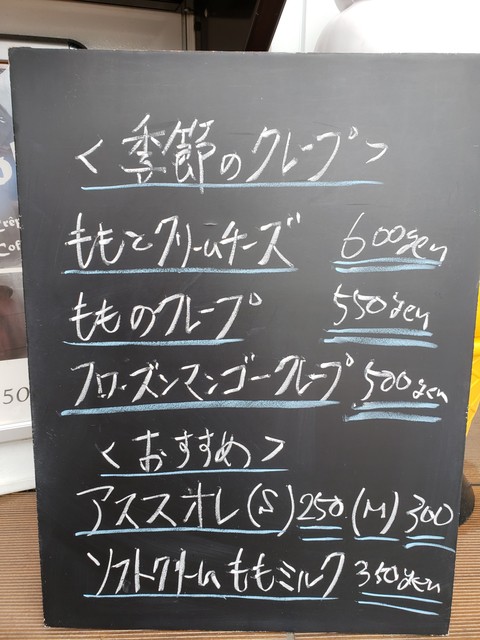 <季節のクレープ>
ももとクリームチーズ 600yen
もものクレープ 550yen
フローズンマンゴークレープ 500yen
<おすすめ>
アイスオレ(S)250.(M)300
ソフトクリームももミルク 350yen
50